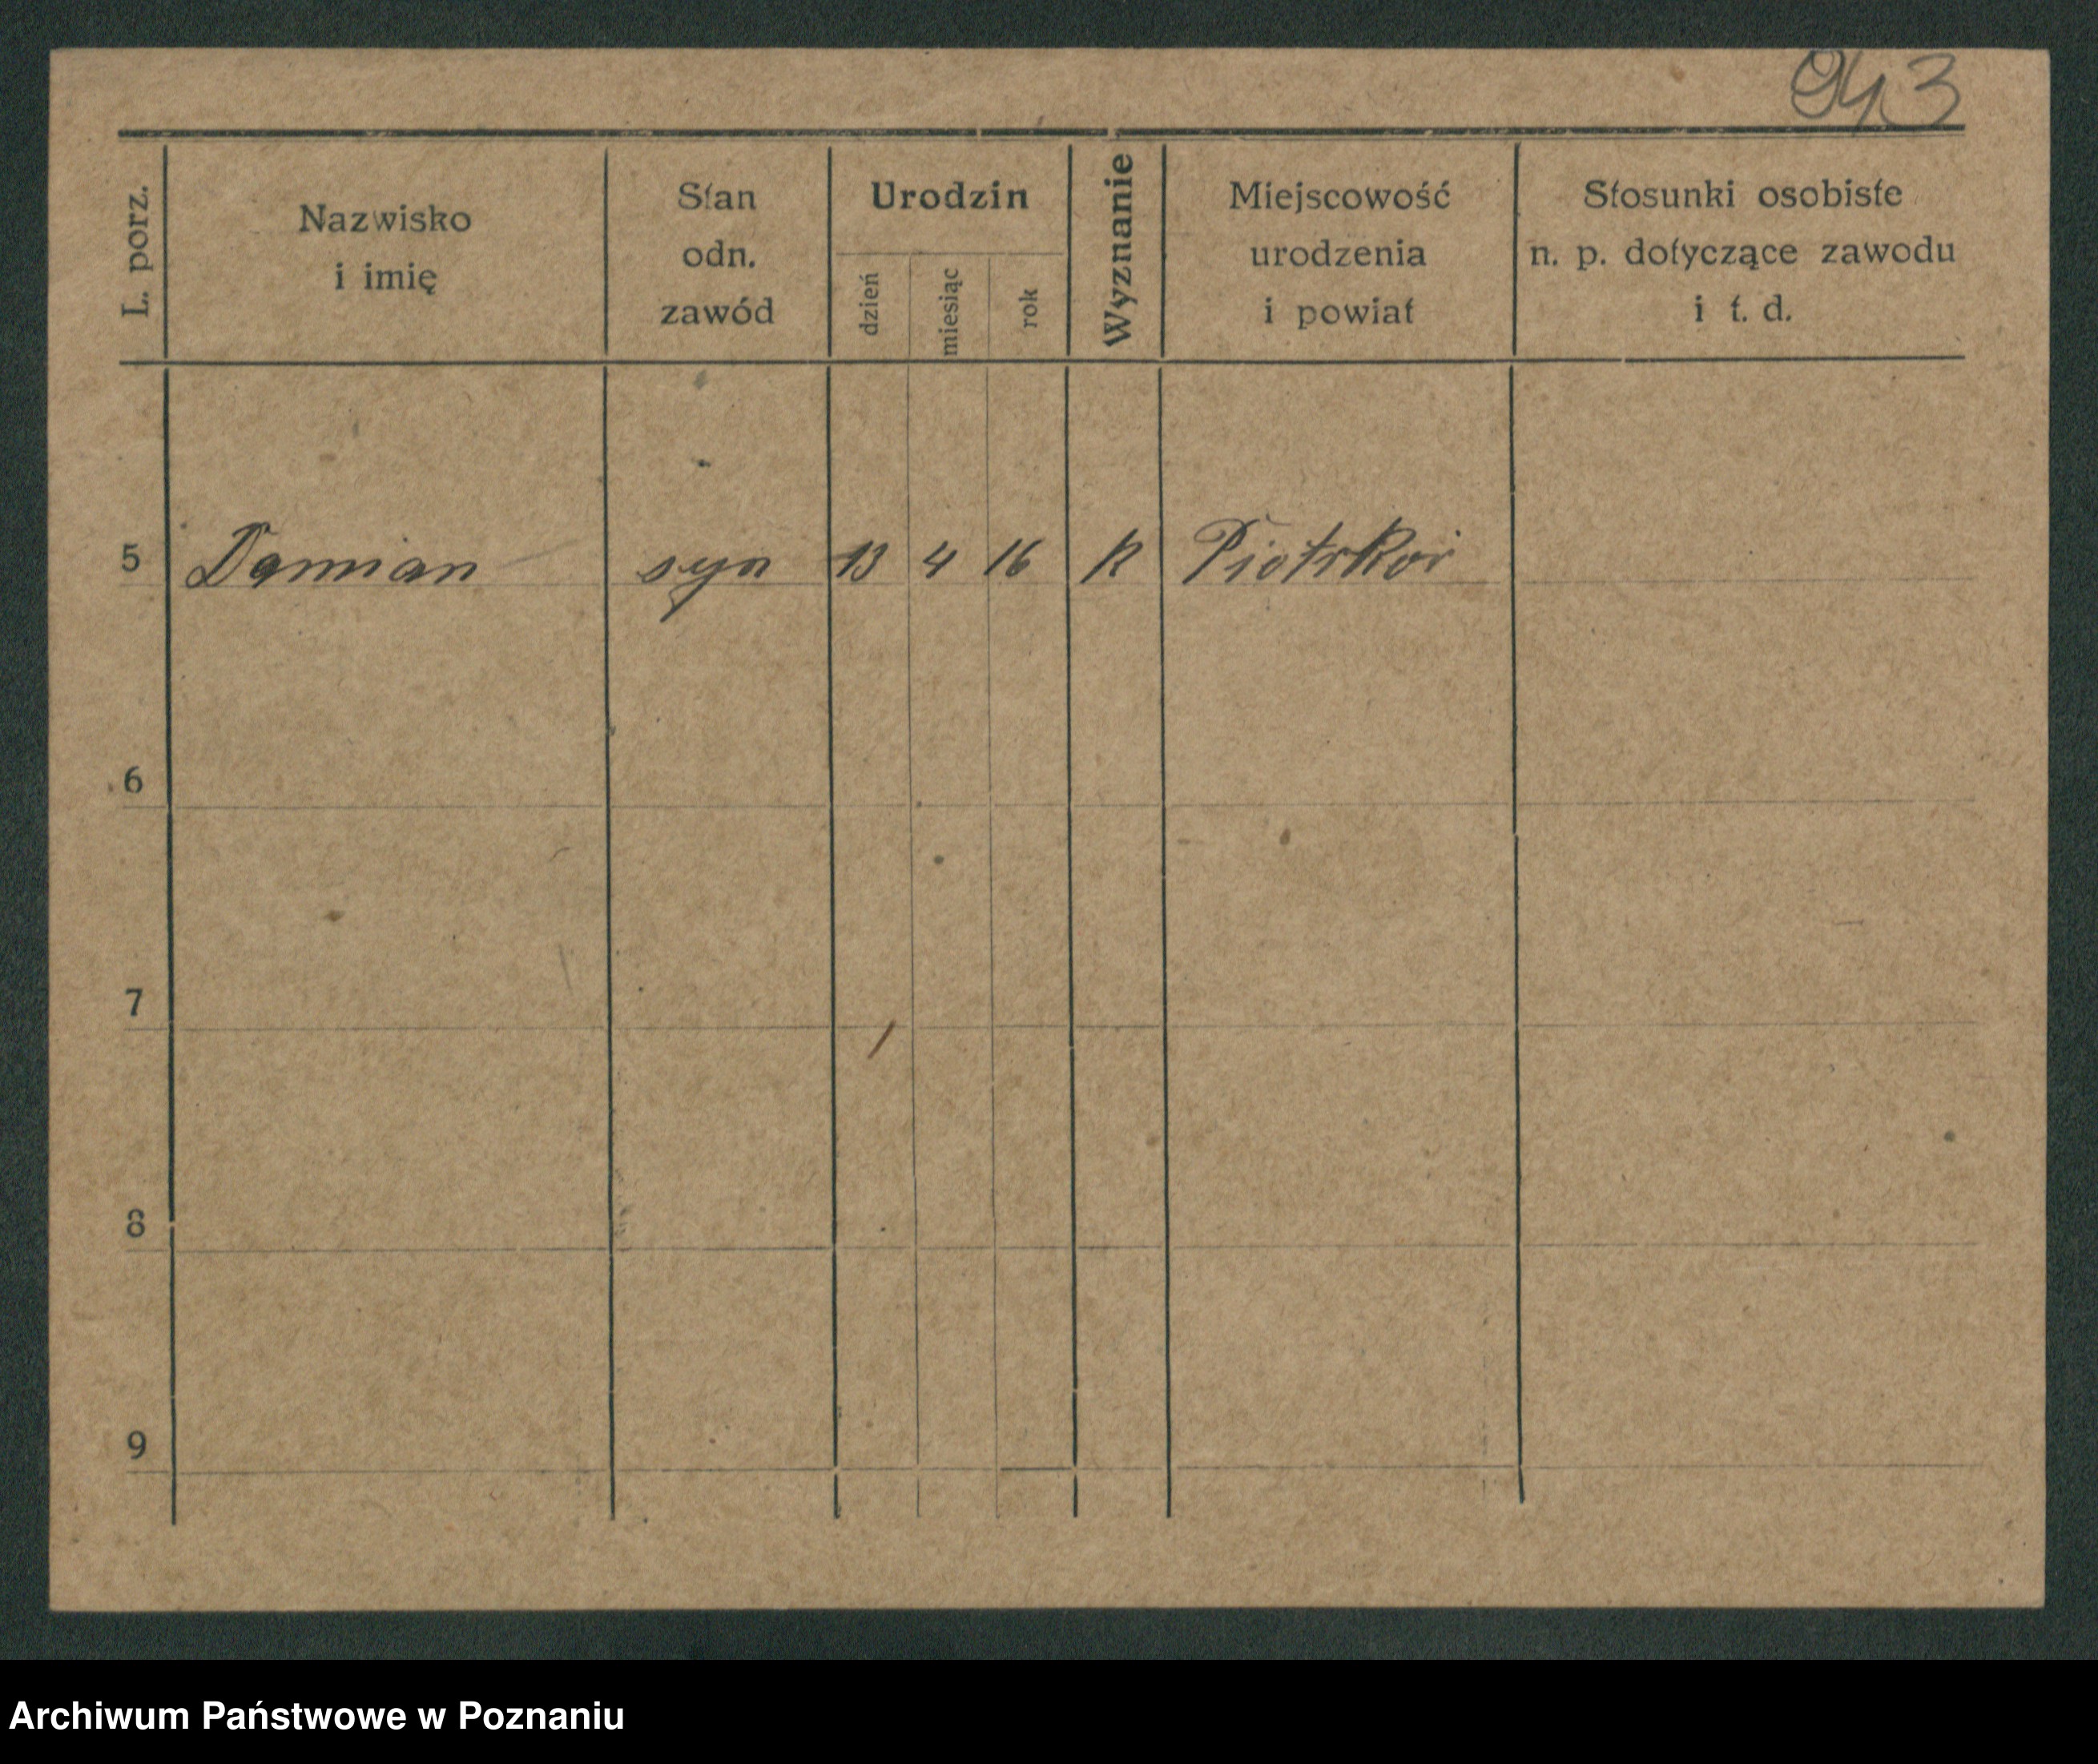 943
L. porz.
Nazwisko
i imię
Stan
odn.
zawód
Urodzin
dzień
miesiąc
rok
Wyznanie
Miejscowość
urodzenia
i powiat
Stosunki osobiste
n. p. dotyczące zawodu
i t. d.
5 Damian syn 13 4 16 k
6
7
8
9
Archiwum Państwowe w Poznaniu